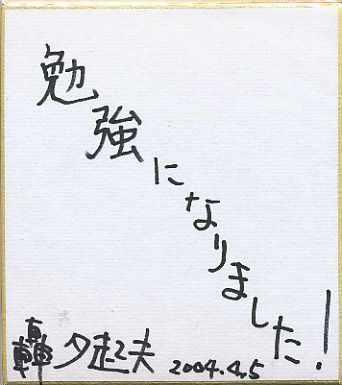 勉強になりました!
轟夕起夫 2004.4.5